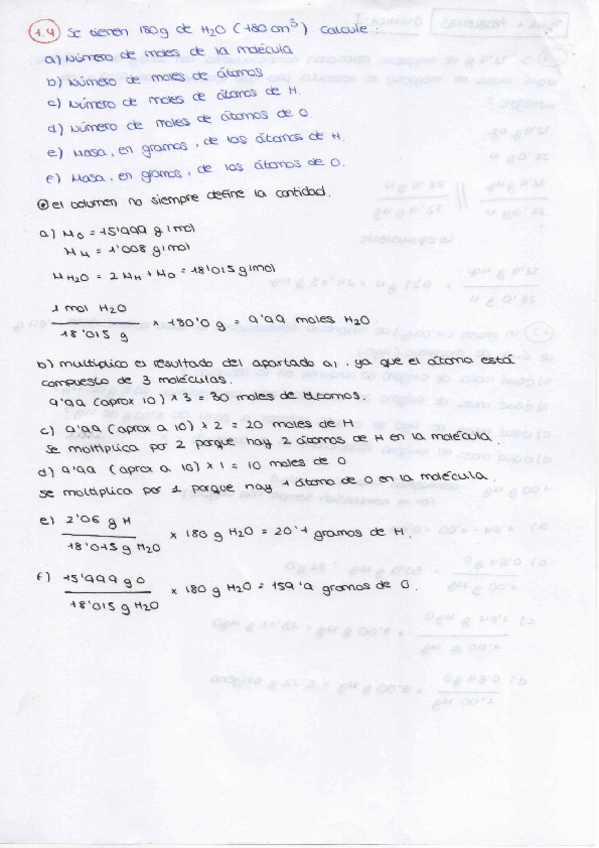 1.4 Se tienen 180g de H2O (180 cm³) calcule:
a) Número de moles de la molécula
b) Número de moles de átomos
c) Número de moles de átomos de H.
d) Número de moles de átomos de O.
e) Masa, en gramos, de los átomos de H.
f) Masa, en gramos, de los átomos de O.
el volumen no siempre define la cantidad.
a) MO = 15'999 g/mol
MH = 1'008 g/mol
MH2O = 2MH + MO = 18'015 g/mol
1 mol H2O
18'015 g
× 180'0 g = 9'99 moles H2O.
b) multiplico el resultado del apartado a), ya que el átomo está
compuesto de 3 moléculas.
9'99 (aprox 10) × 3 = 30 moles de átomos.
c) 9'99 (aprox a 10) × 2 = 20 moles de H
Se multiplica por 2 porque hay 2 átomos de H en la molécula.
d) 9'99 (aprox a 10) × 1 = 10 moles de O
Se multiplica por 1 porque hay 1 átomo de O en la molécula.
e) 2'06 g H
18'015 g H2O
× 180 g H2O = 20'1 gramos de H.
f) 15'999 g O
18'015 g H2O
× 180 g H2O = 159'9 gramos de O.